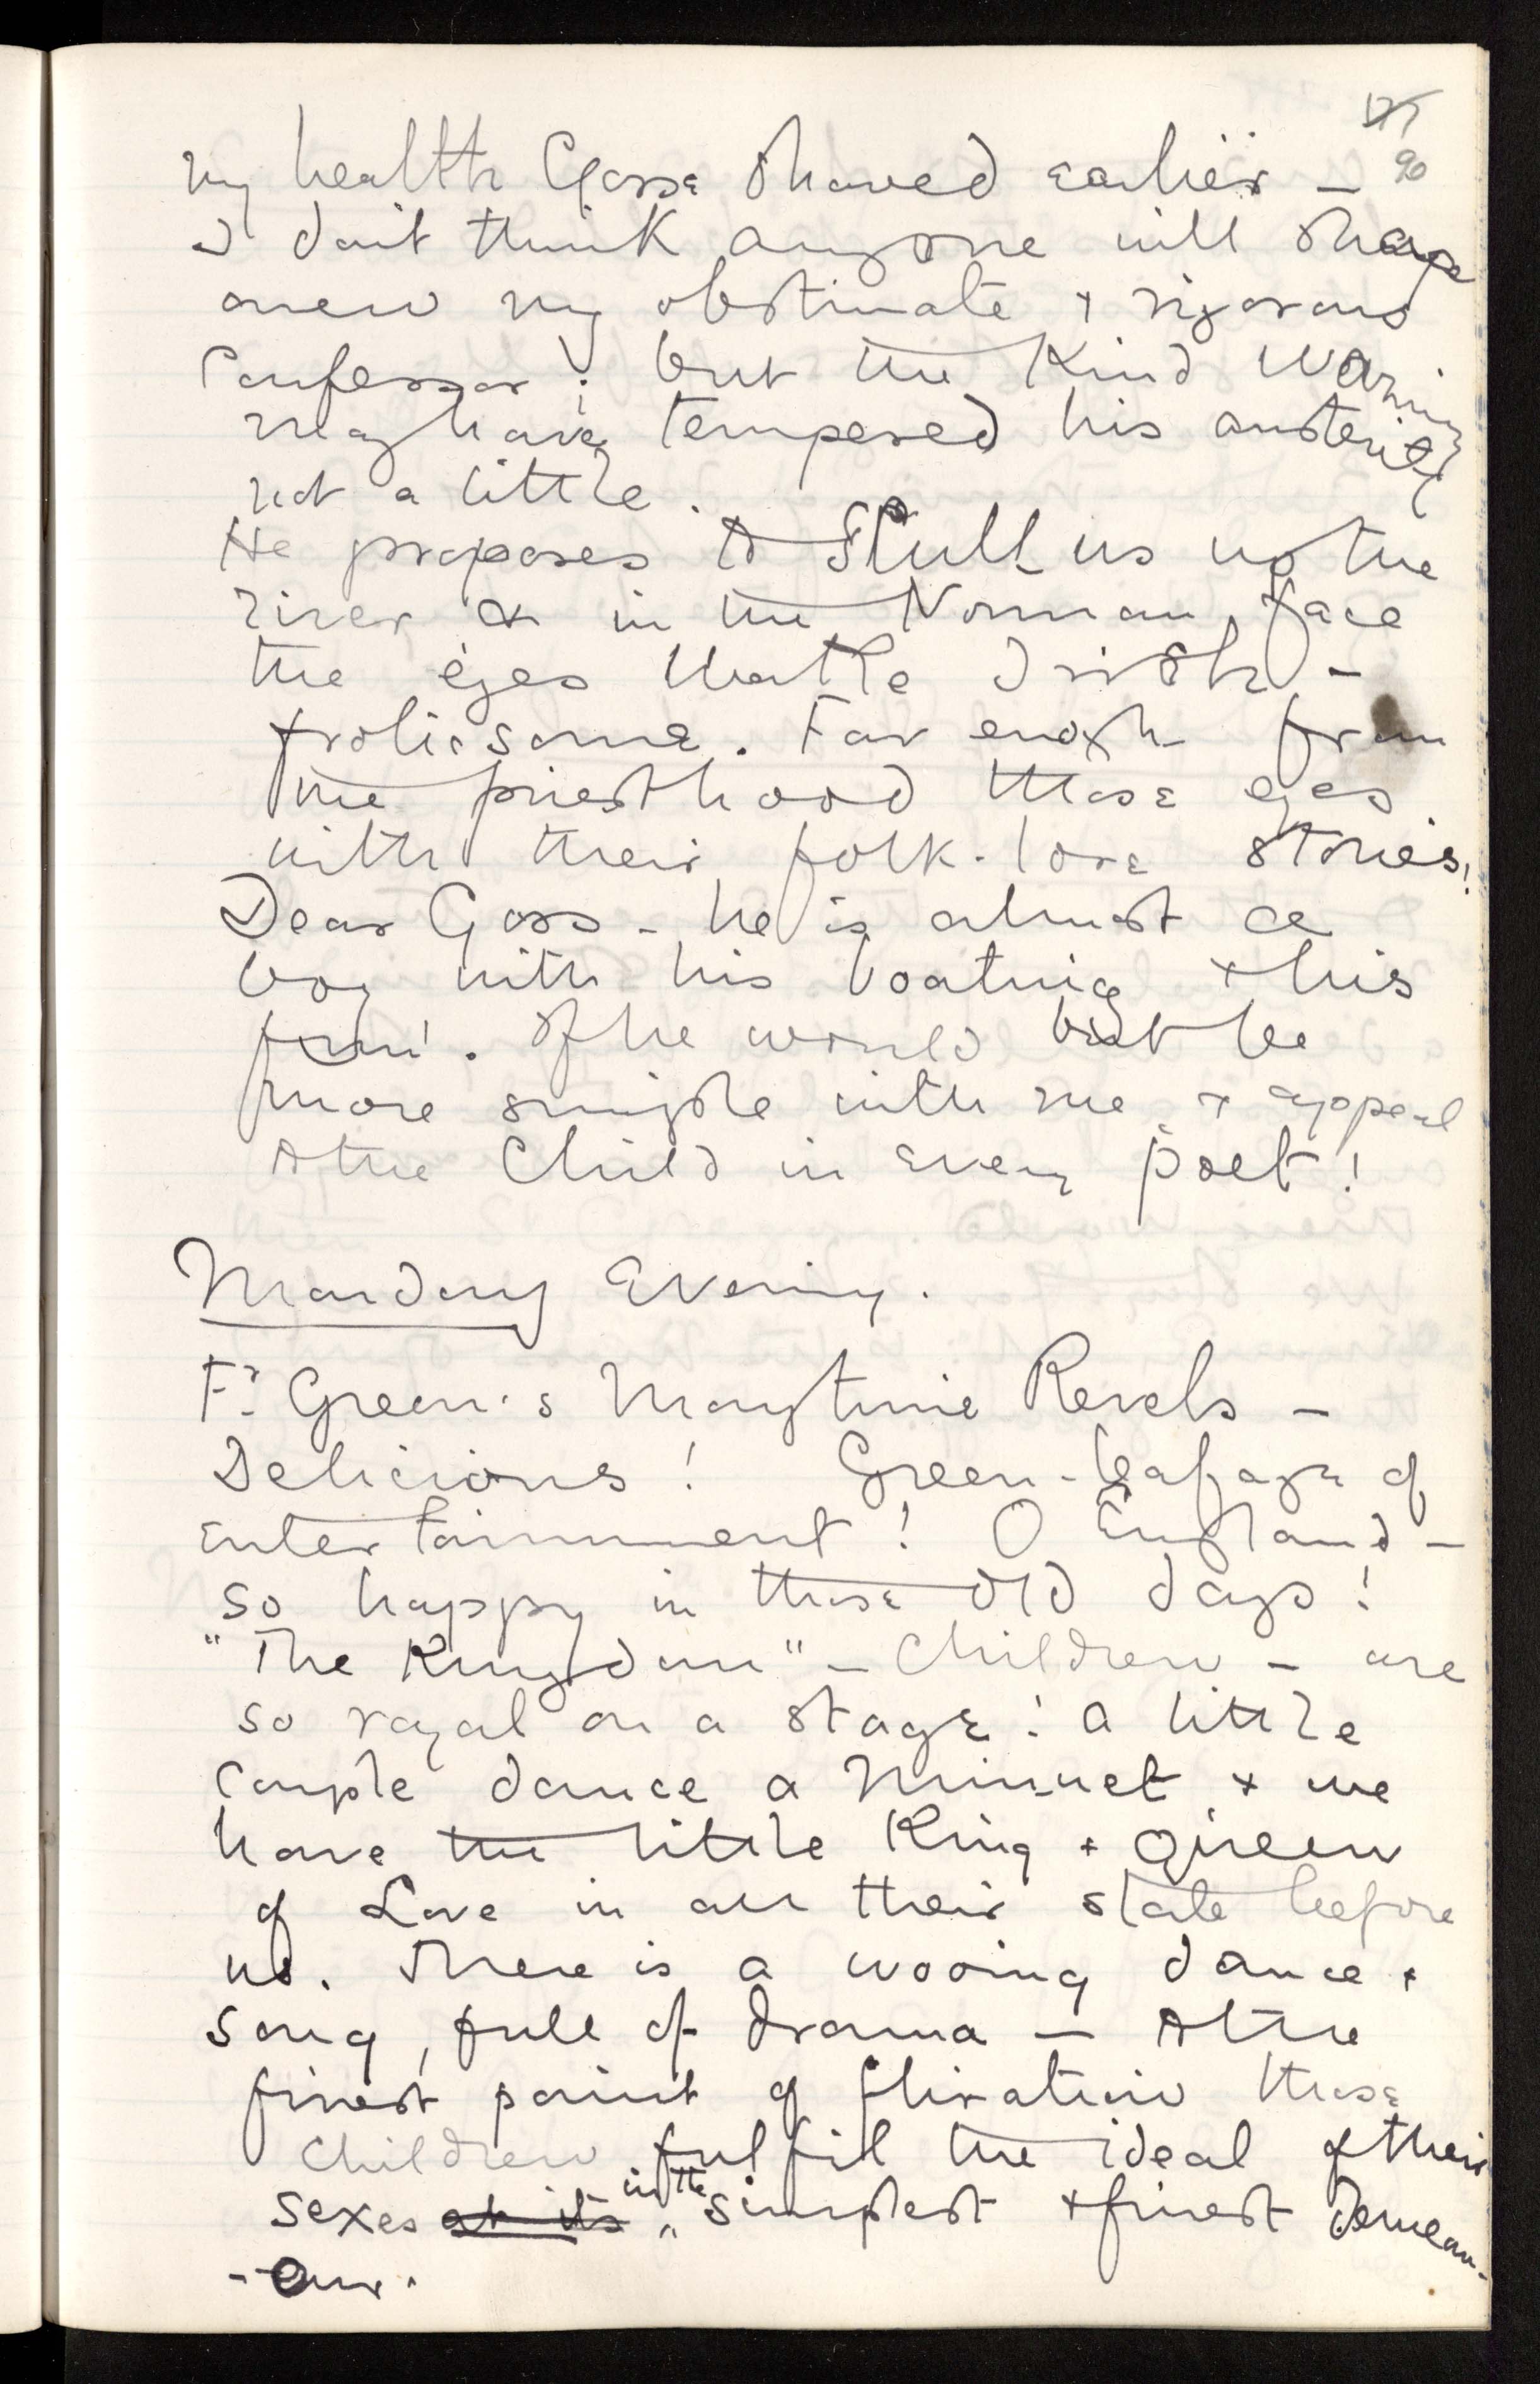 90
my health Goss shaved earlier —
I don't think anyone will shape
anew my obstinate + rigorous
Confessor; but the kind warning
may have tempered his austerity
not a little.
He proposes to scull us up the
river & in the Norman face
the eyes were Irish —
frolicsome. Far enough from
the priesthood those eyes
with their folk-lore stories!
Dear Goss — he is almost a
boy with his boating + his
fun! If he would but be
more simple with me + appeal
to the Child in every poet!
Monday Evening.
Fr Green's Maytime Revels —
Delicious! Green-leafage of
entertainment! O England —
so happy in those old days!
"The Kingdom" — Children — are
so royal on a stage! A little
couple dance a Minuet + we
have the little King + Queen
of Love in all their state before
us. There is a wooing dance +
song, full of drama — At the
finest point of flirtation these
Children fulfil the ideal of their
sexes at its in the simplest + finest demean-
-our.